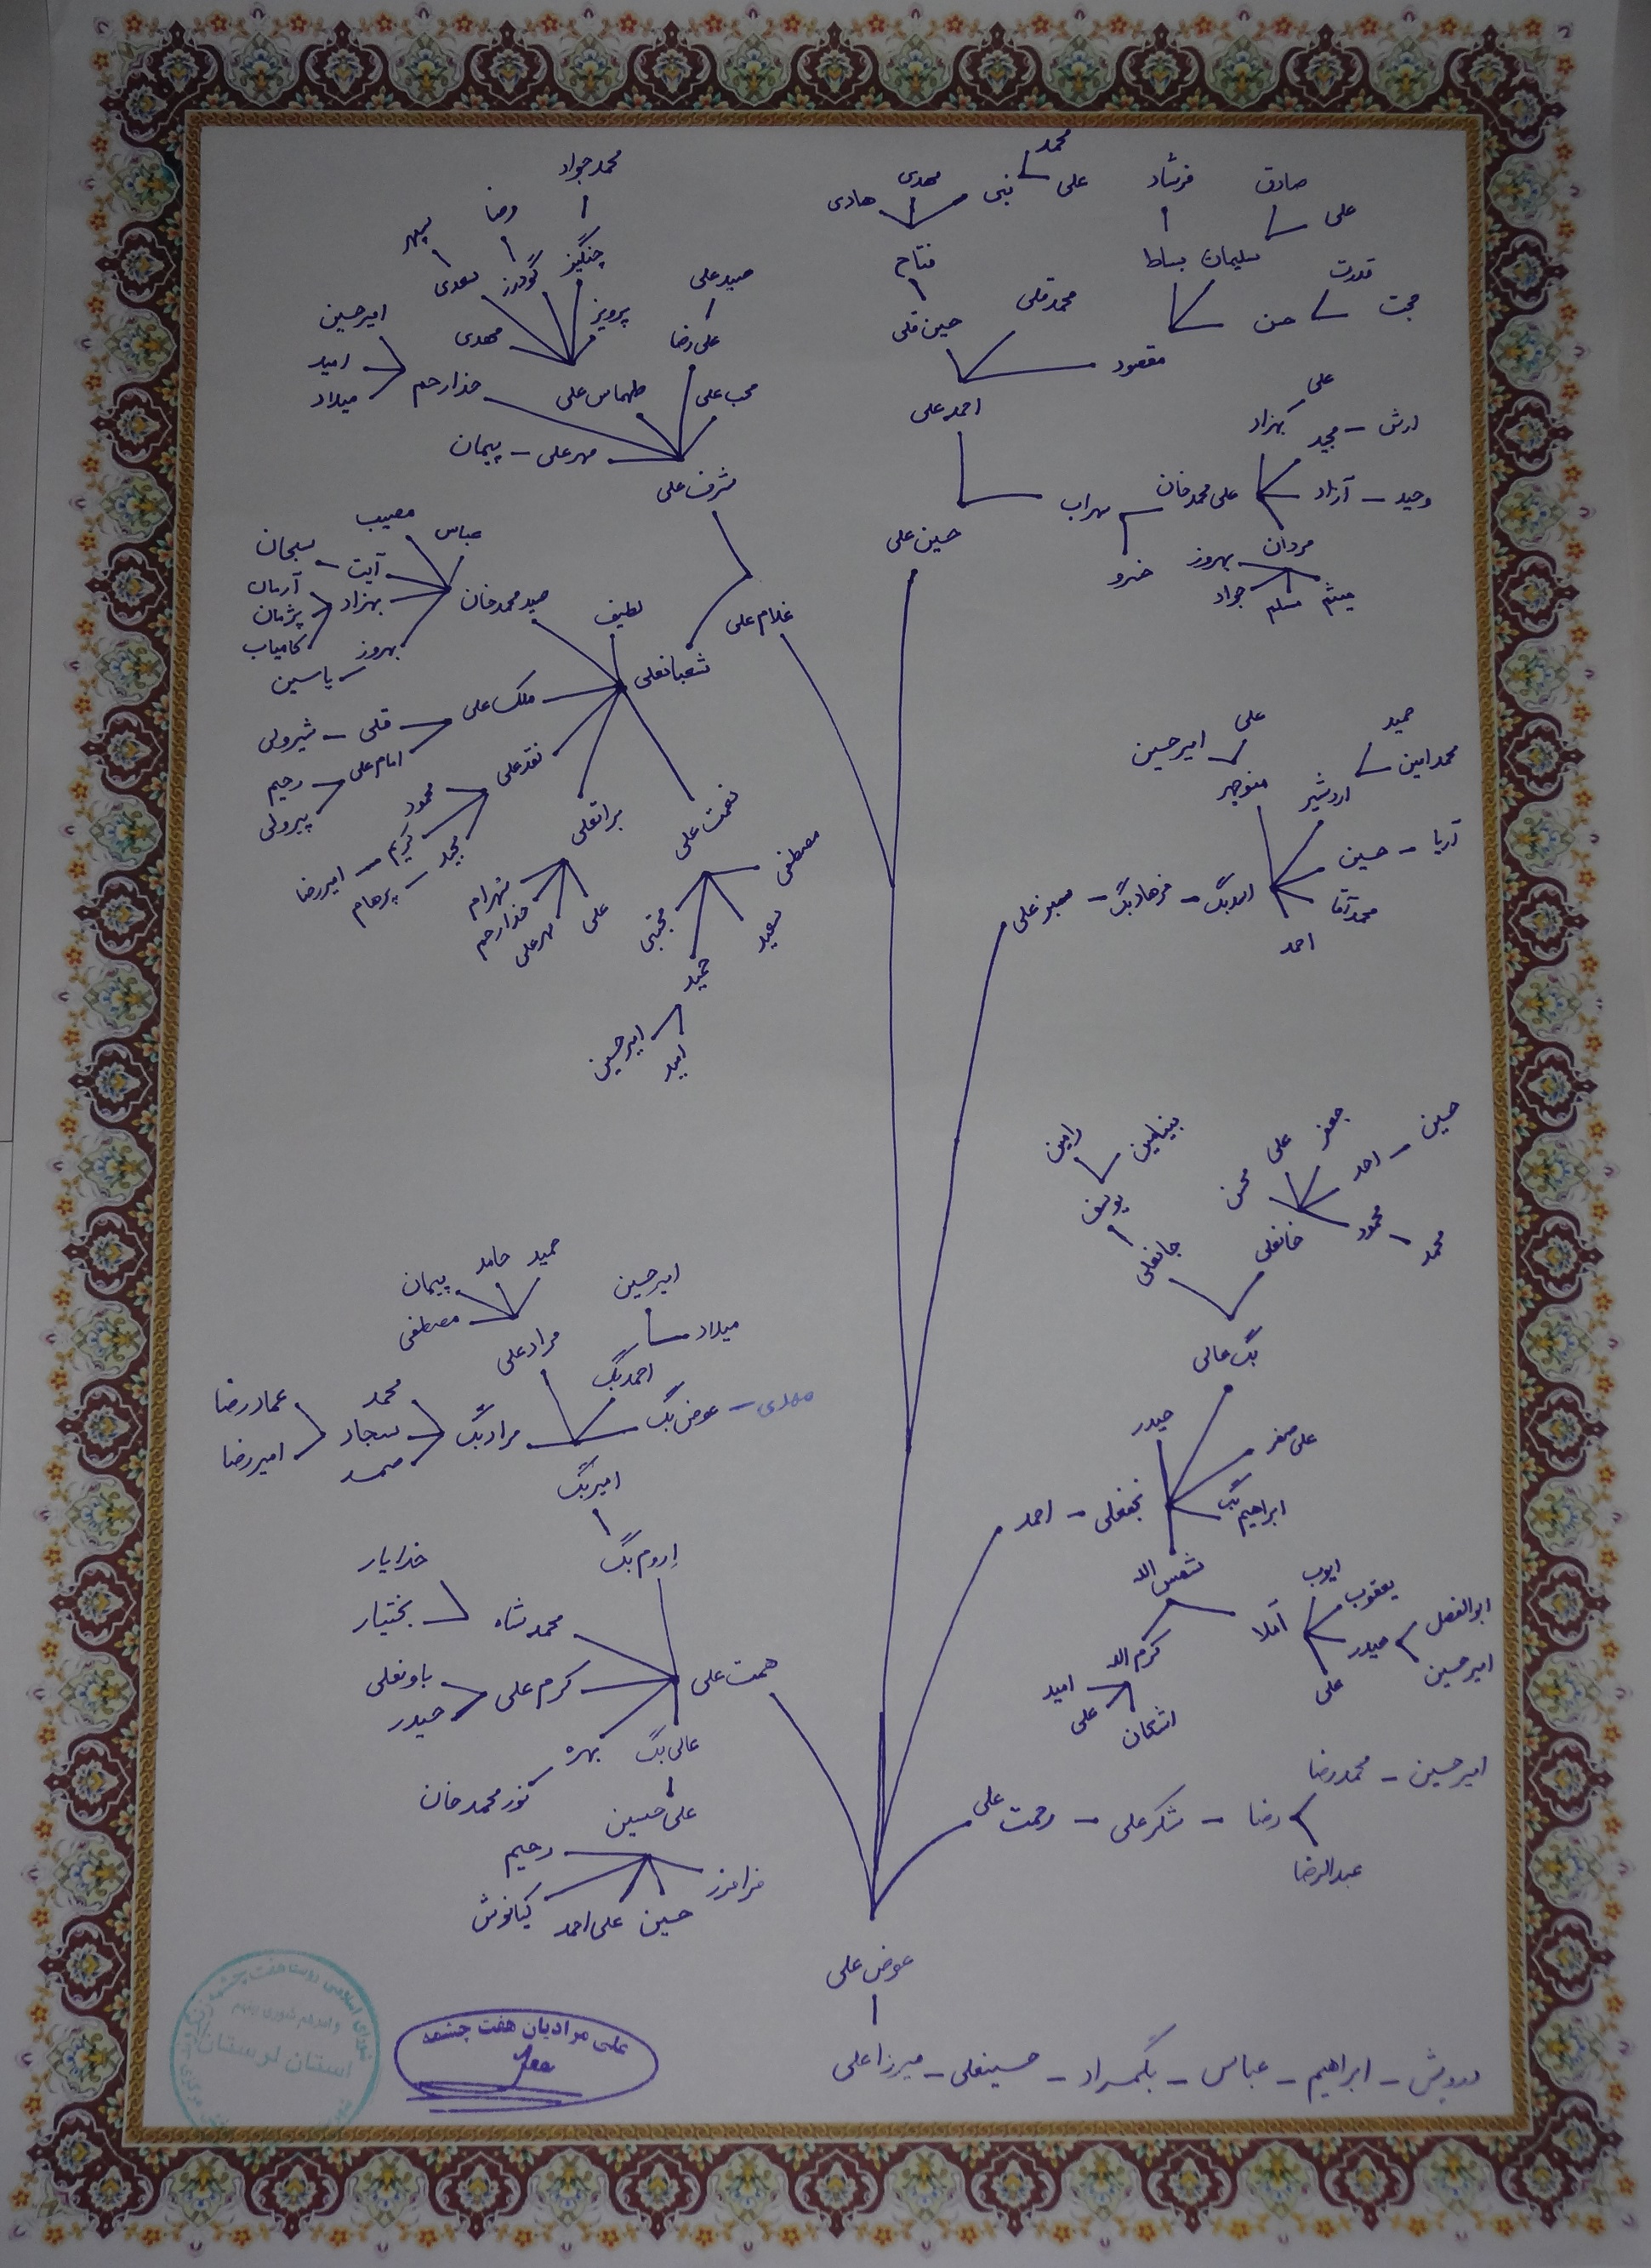 محمد
محمدجواد
مهدی
هادی
نبی
علی
فرشاد
صادق
علی
رضا
سپهر
چنگیز
گودرز
سعدی
فتاح
سلیمان
بساط
قدرت
حجت
حسن
صیدعلی
پرویز
مهدی
علی‌رضا
حسین‌قلی
محمدقلی
مقصود
امیرحسین
امید
میلاد
خدارحم
طهماس‌علی
محب‌علی
احمدعلی
علی
بهزاد
مجید – آرش
مهرعلی – پیمان
مشرف‌علی
سهراب
علی‌محمدخان
آزاد – وحید
حسین‌علی
خسرو
مردان
بهروز
جواد
مسلم
میثم
مصیب
عباس
سبحان
آیت
آرمان
پژمان
کامیاب
بهزاد
صیدمحمدخان
لطیف
غلام‌علی
بهروز
یاسین
شعبانعلی
ملک‌علی
قلی – شیرولی
امام‌علی
رحیم
پیرولی
نقدعلی
محمود
کریم – امیررضا
مجید – پرهام
براتعلی
نعمت‌علی
شهرام
خدارحم
مهرعلی
علی
مصطفی
سعید
مجتبی
حمید
امیرحسین
امید
علی
امیرحسین
منوچهر
حمید
محمدامین
اردشیر
حسین – آریا
صبرعلی – فرهادبگ – اسدبگ
محمدآقا
احمد
رامین
بنیامین
یوسف
جانعلی
محسن
علی
جعفر
احمد – حسین
محمود – محمد
خانعلی
بگ‌عالی
حیدر
علی‌صفر
احمد – نجفعلی
ابراهیم‌بگ
شمس‌اله
کرم‌اله
امید
علی
اشکان
آملا
ایوب
یعقوب
حیدر
ابوالفضل
امیرحسین
علی
حمید
حامد
پیمان
مصطفی
مرادعلی
امیرحسین
میلاد
احمدبگ
عوض‌بگ – مهدی
مرادبگ
محمد
سجاد
صمد
عمادرضا
امیررضا
امیربگ
اروم‌بگ
خدایار
بختیار
محمدشاه
همت‌علی
کرم‌علی
باونعلی
حیدر
بهره
نورمحمدخان
عالی‌بگ
علی‌حسین
رحیم
کیانوش
علی‌احمد
حسین
فرامرز
رحمت‌علی – شکرعلی – رضا
محمدرضا – امیرحسین
عبدالرضا
عوض‌علی
درویش – ابراهیم – عباس – بگمراد – حسینعلی – میرزاعلی
علی مرادیان هفت چشمه
شورای اسلامی روستا هفت چشمه
استان لرستان